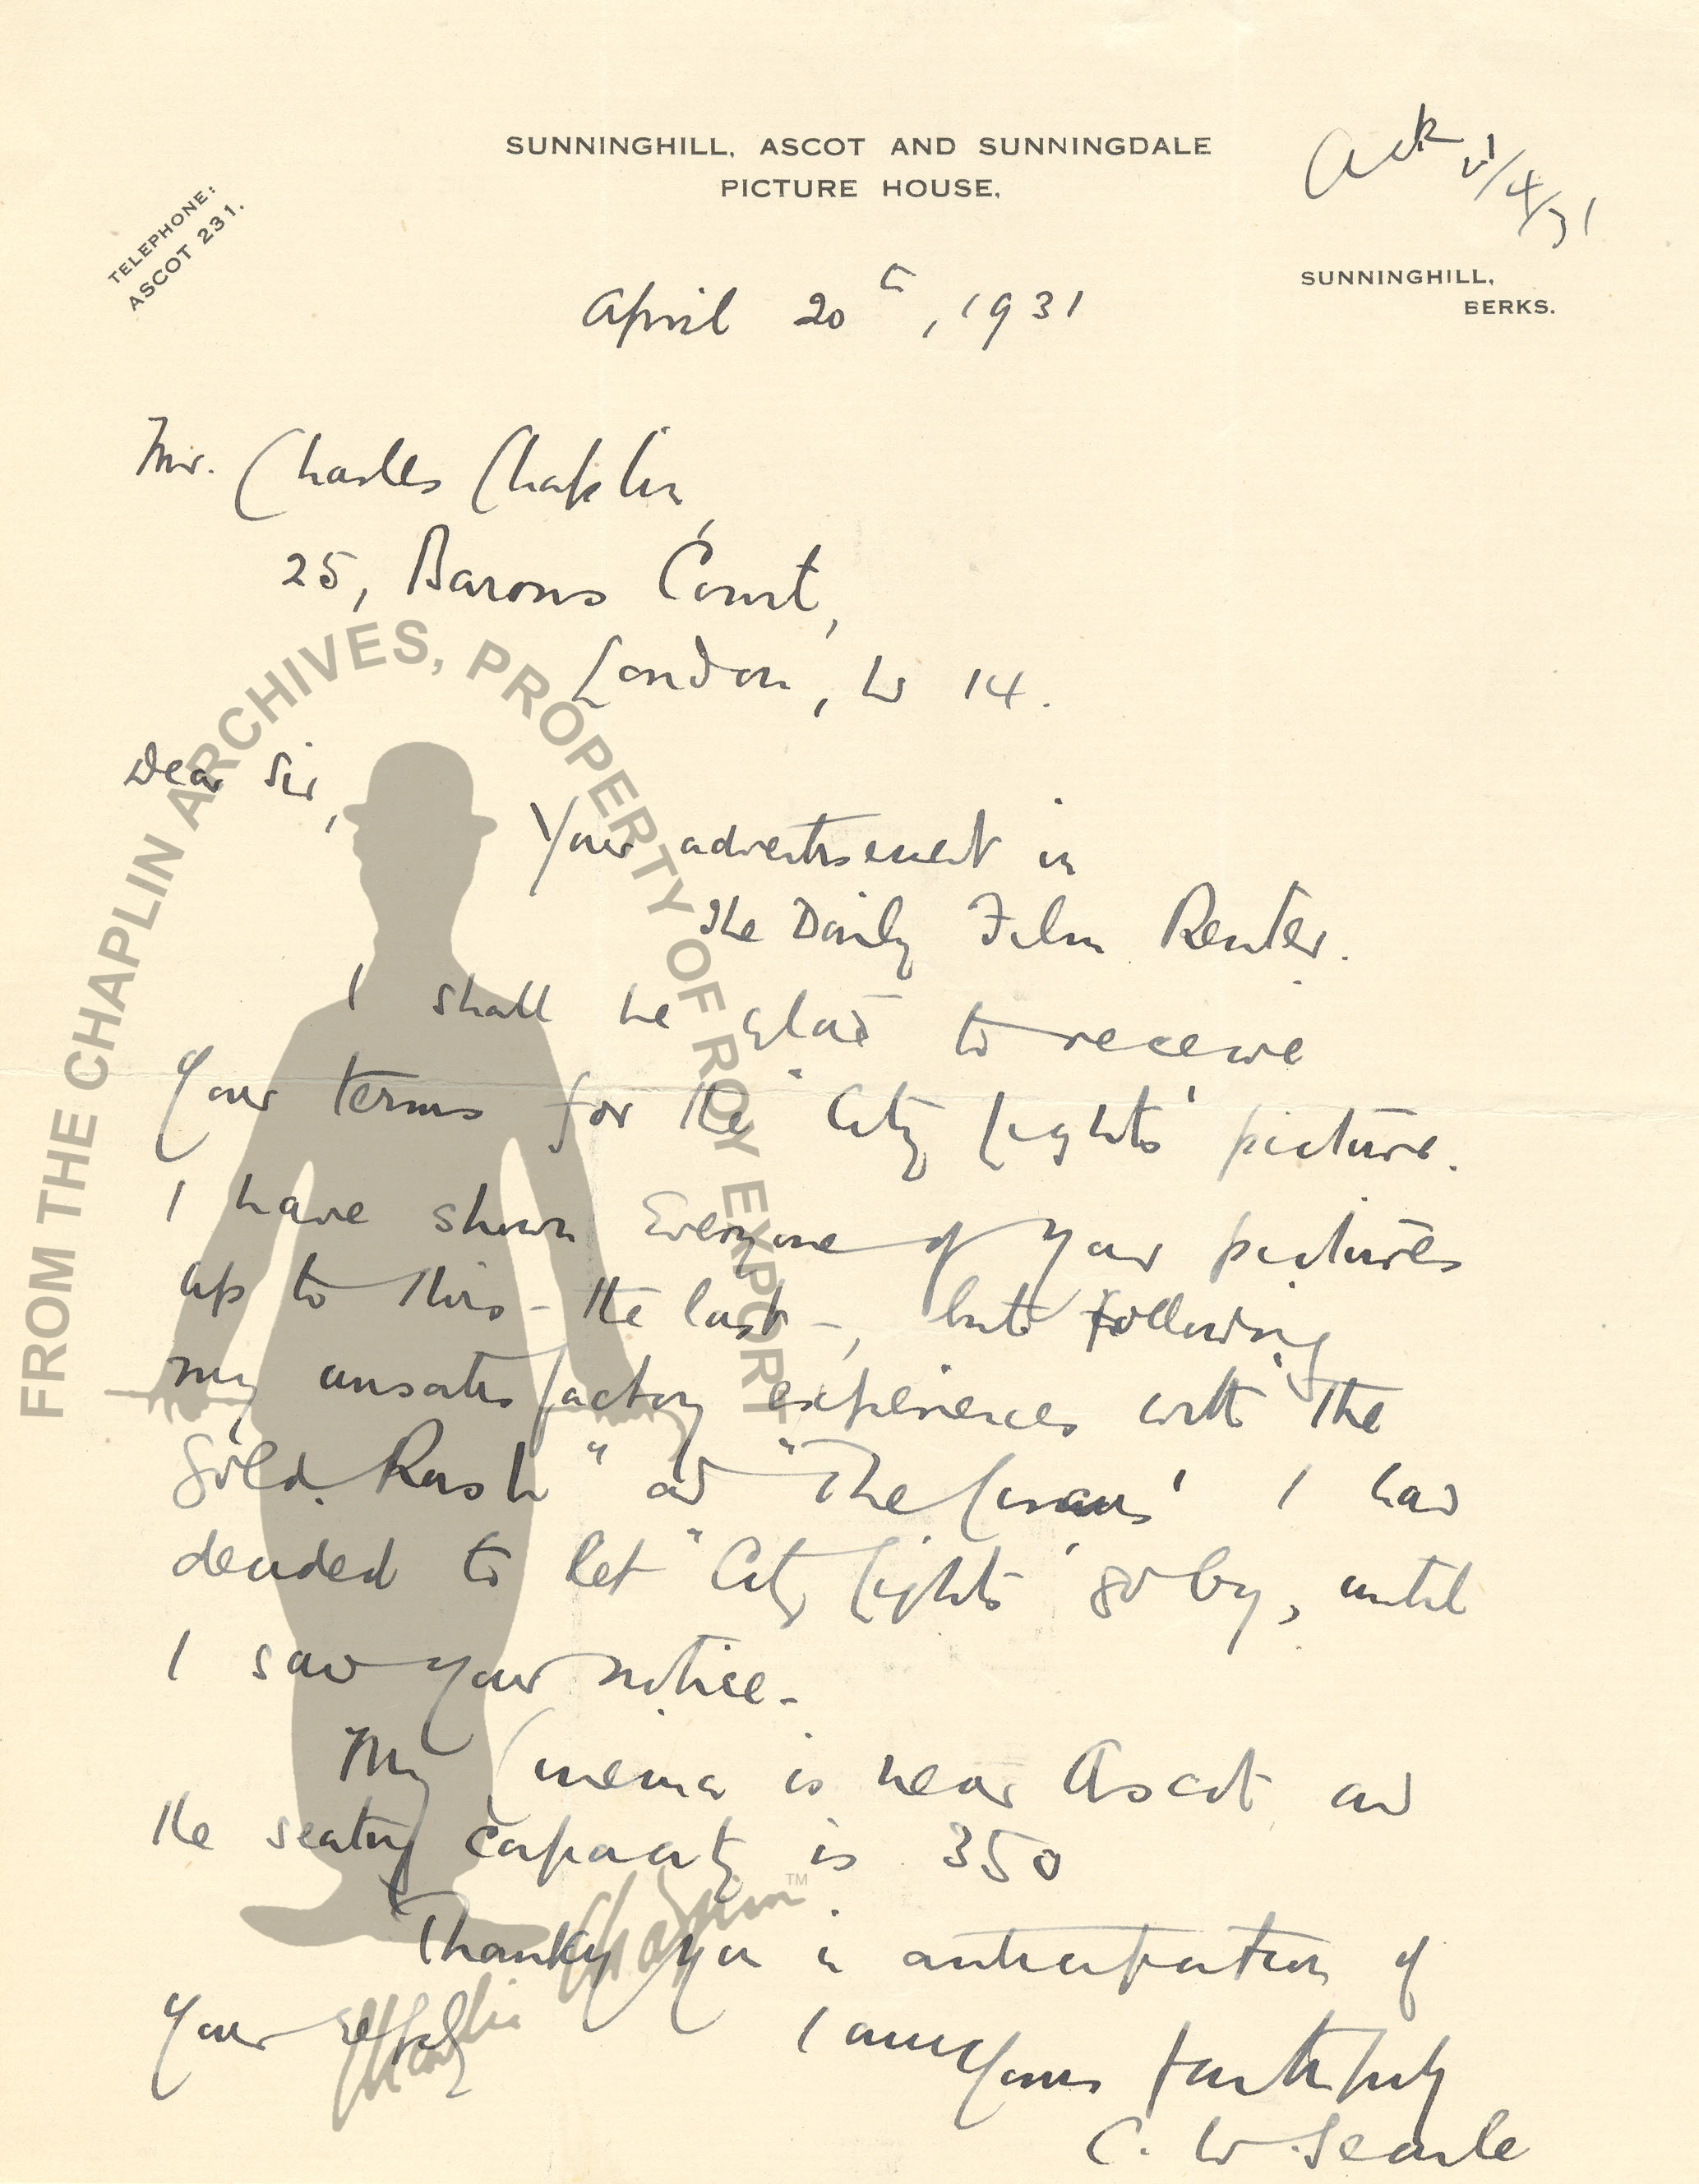 SUNNINGHILL, ASCOT AND SUNNINGDALE
PICTURE HOUSE.
TELEPHONE:
ASCOT 231.
Ack 21/4/31
SUNNINGHILL,
BERKS.
April 20th, 1931
Mr. Charles Chaplin,
25, Barons Court,
London, W 14.
Dear Sir,
Your advertisement in
The Daily Film Renter.
I shall be glad to receive
your terms for the "City Lights' picture.
I have shown Everyone of your pictures
up to this - the last -, but following
my unsatisfactory experiences with "The
Gold Rush" and "The Circus' I had
decided to let "City Lights' go by, until
I saw your notice.
My Cinema is near Ascot and
the seating capacity is 350
Thanking you in anticipation of
your reply
I am
Yours faithfully
C. W. Searle
FROM THE CHAPLIN ARCHIVES, PROPERTY OF ROY EXPORT
Charlie Chaplin™